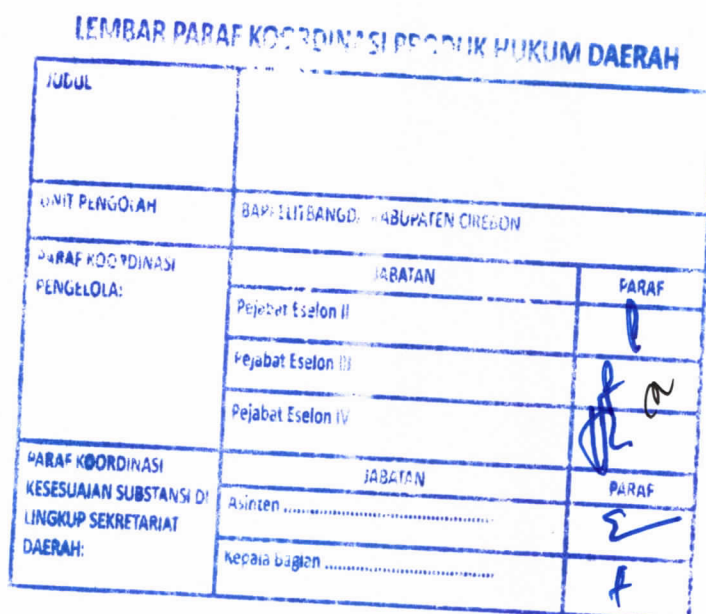 LEMBAR PARAF KOORDINASI PRODUK HUKUM DAERAH
JUDUL
UNIT PENGOLAH
BAPPELITBANGDA KABUPATEN CIREBON
PARAF KOORDINASI
PENGELOLA:
JABATAN
PARAF
Pejabat Eselon II
Pejabat Eselon III
Pejabat Eselon IV
PARAF KOORDINASI
KESESUAIAN SUBSTANSI DI
LINGKUP SEKRETARIAT
DAERAH:
JABATAN
PARAF
Asinten ................................................
Kepala Bagian ........................................